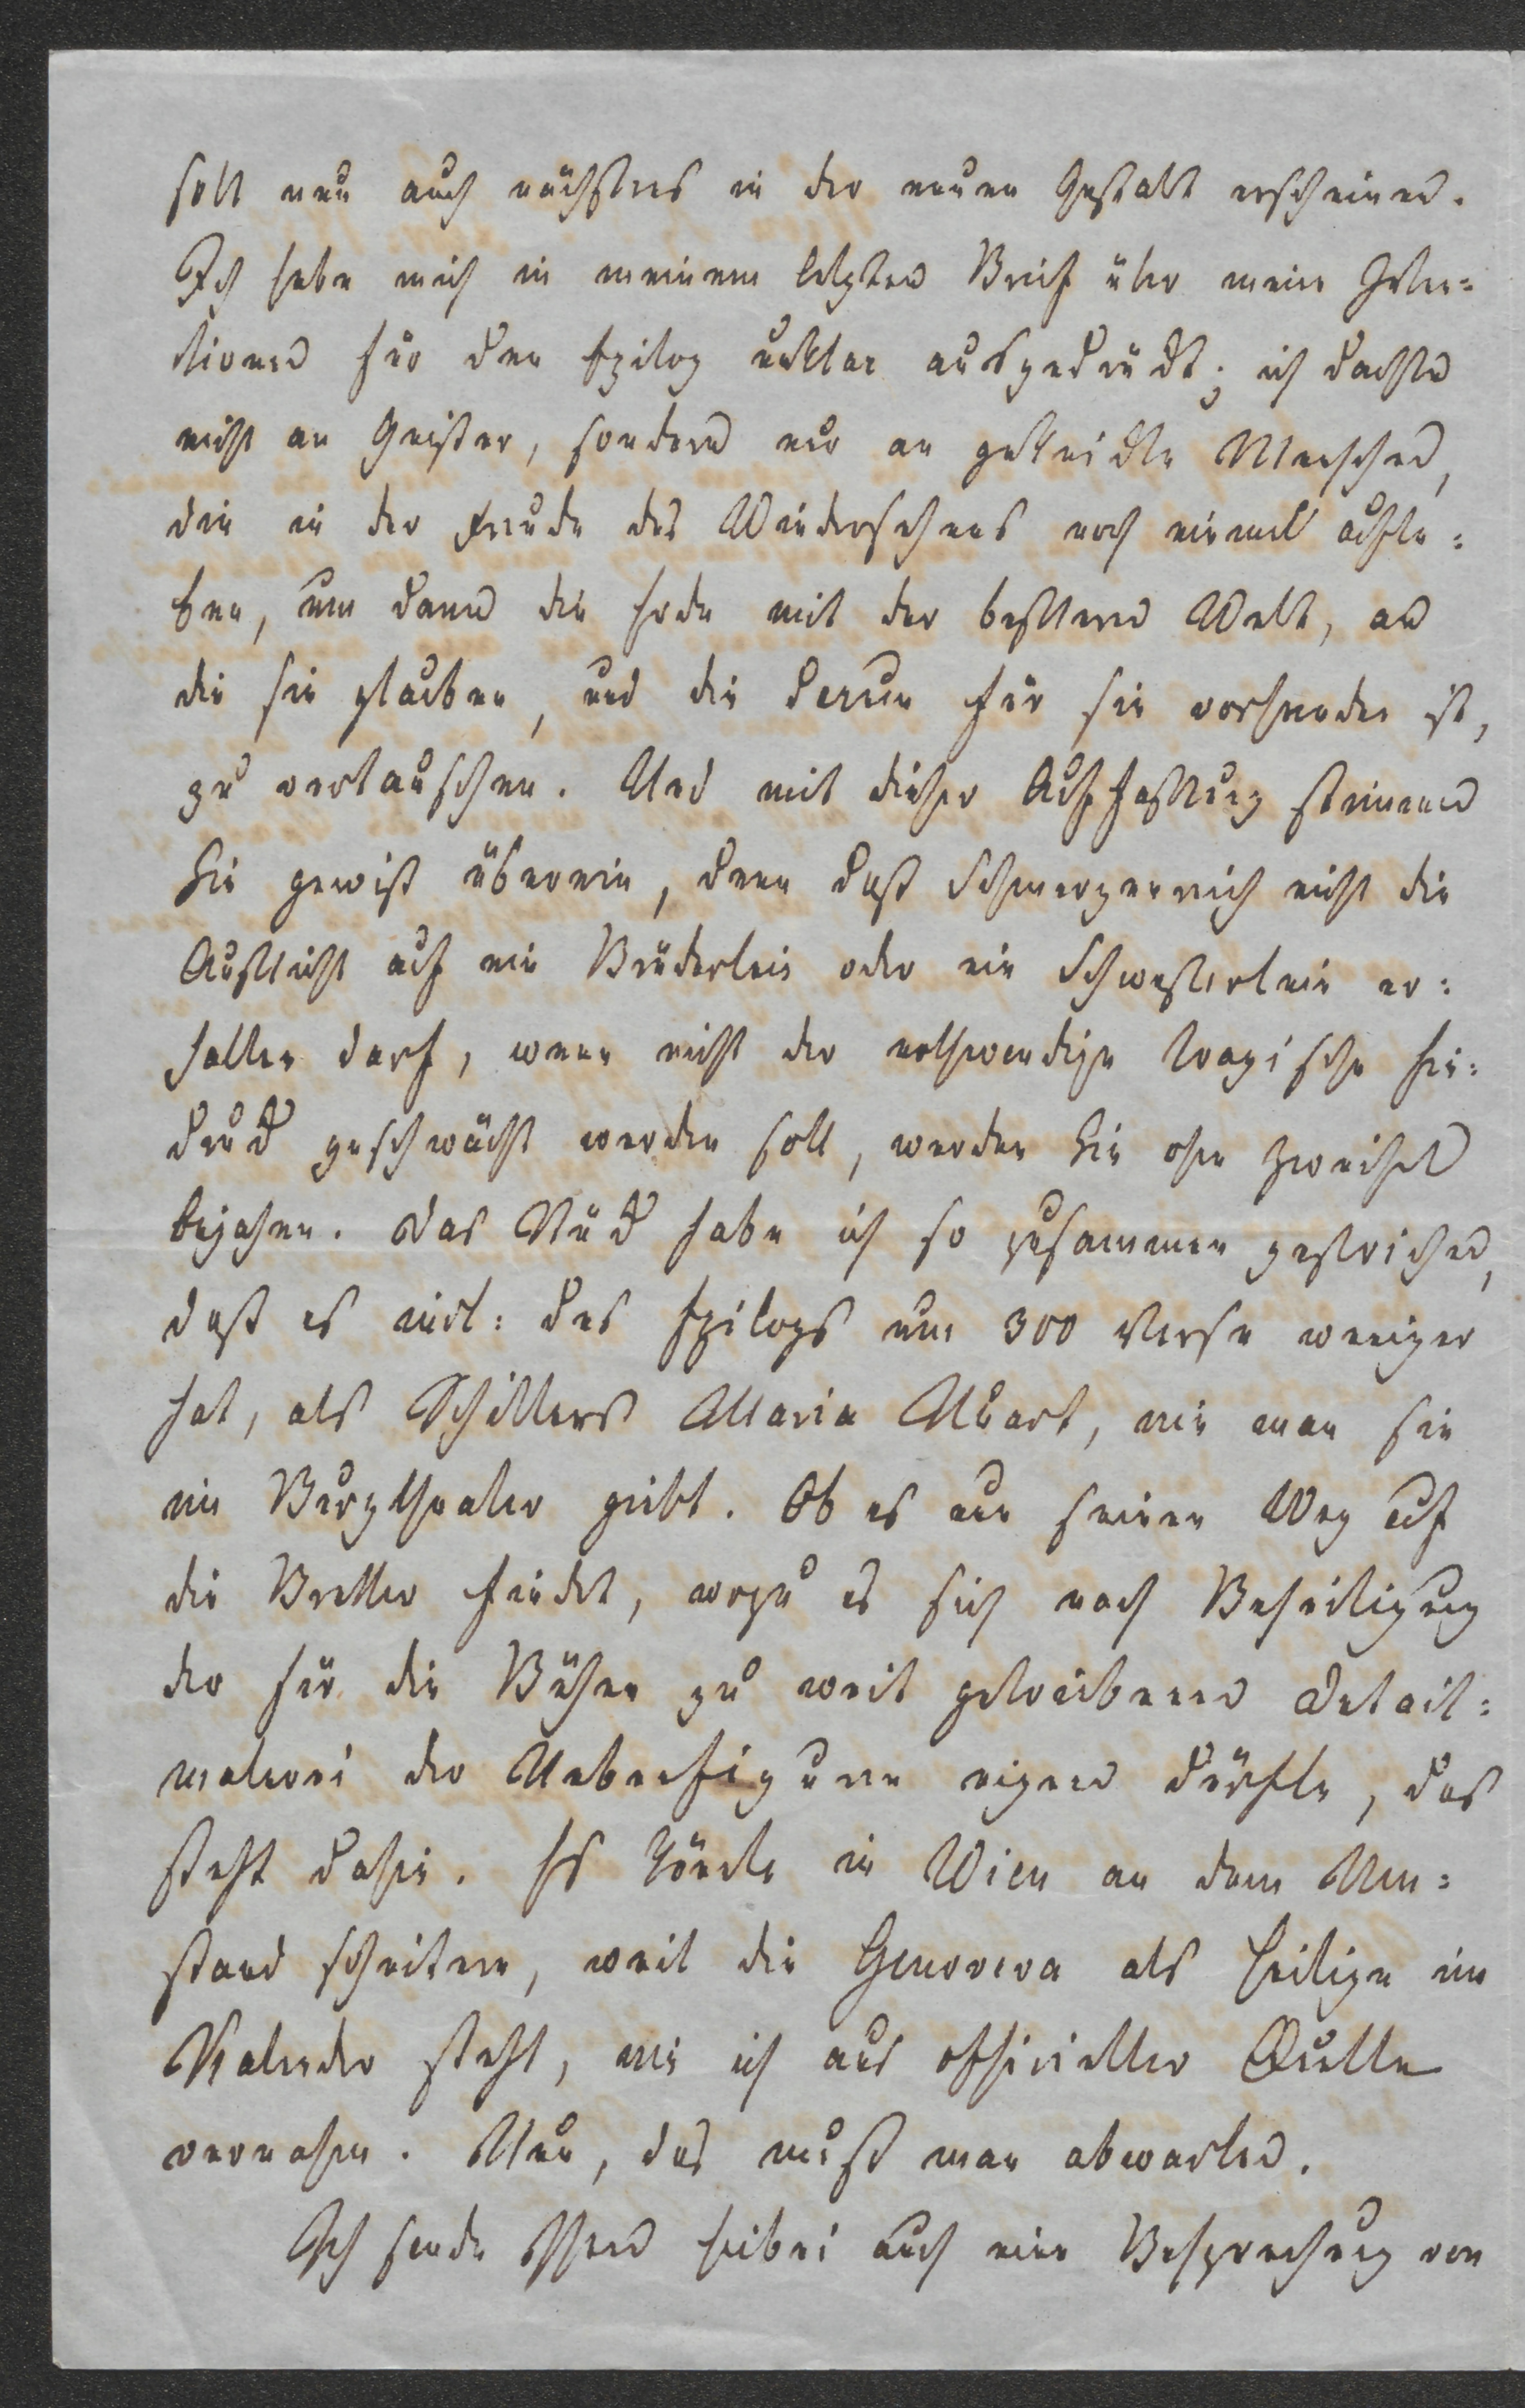 soll nun auch nächstens in der neuen Gestalt erscheinen.
Ich habe mich in meinem letzten Brief über meine Inten-
tionen für den Epilog unklar ausgedrückt; ich dachte
nicht an Geister, sondern nur an geknickte Menschen,
die in der Freude des Wiedersehens noch einmal aufle-
ben, um dann die Erde mit der besseren Welt, an
die sie glauben, und die darum für sie vorhanden ist,
zu vertauschen. Und mit dieser Auffassung stimmen
Sie gewiß überein, denn daß Schmerzenreich nicht die
Aussicht auf ein Brüderlein oder ein Schwesterlein er-
halten darf, wenn nicht der nothwendige tragische Ein-
druck geschwächt werden soll, werden Sie ohne Zweifel
bejahen. Das Stück habe ich so zusammen gestrichen,
daß es incl: des Epilogs um 300 Verse weniger
hat, als Schillers Maria Stuart, wie man sie
im Burgtheater giebt. Ob es nun seinen Weg auf
die Bretter findet, wozu es sich nach Beseitigung
der für die Bühne zu weit getriebenen Detail-
malerei der Nebenfiguren eignen dürfte, das
steht dahin. Es könnte in Wien an dem Um-
stand scheitern, weil die Genoveva als Heilige im
Kalender steht, wie ich aus officieller Quelle
vernahm. Nun, das muß man abwarten.
Ich sende Ihnen hiebei auch eine Besprechung von